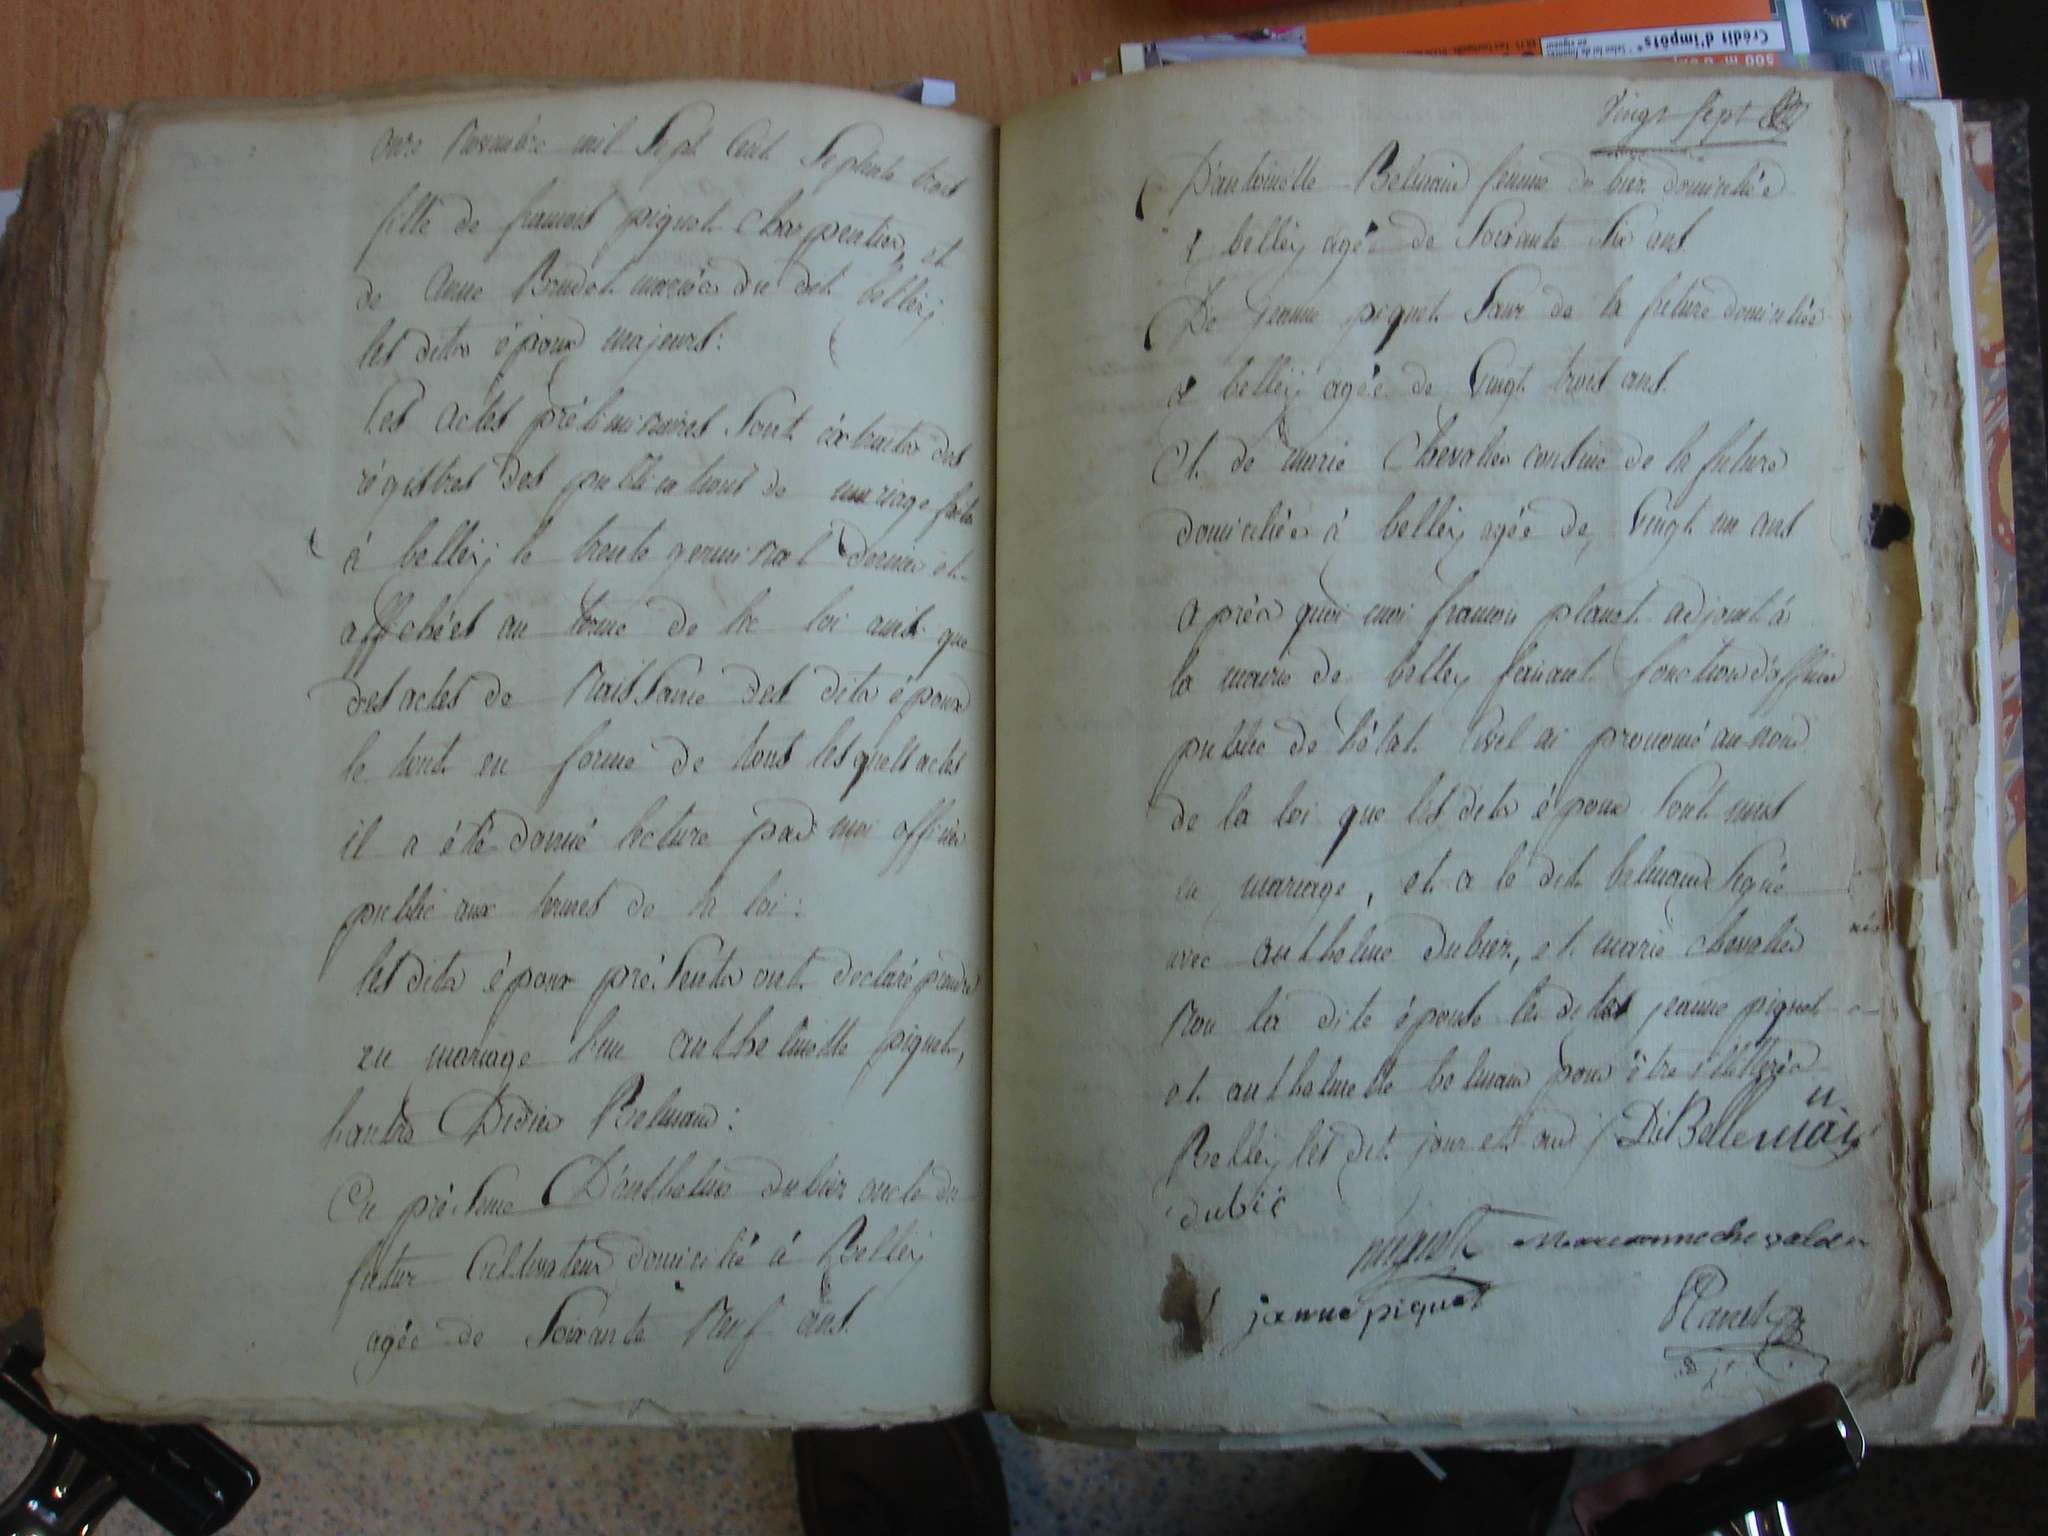 onze Novembre mil Sept Cent Septente trois
fille de francois piquet Charpentier, et
de Anne Baudet mariée du dit belleÿ
les dits époux majeurs:
les actes préliminaires Sont extraits des
régistres des publications de mariage faites
à belleÿ le trente germinal dernier et
affichées au terme de la loi ainsi que
des actes de Naissance des dits époux
le tout en forme de tous les quels actes
il a été donné lecture par moi officier
public aux termes de la loi:
les dits époux présents ont declaré prendre
en mariage lune anthelmette piquet,
lautre Didier Belmand:
En présence D'anthelme dubiez oncle du
futur Cultivateur domicilié à Belleÿ
agée de Soixante Neuf ans
Vingt Sept
D'antoinette Belmand femme du biez domiciliée
à belleÿ agée de Soixante Six ans
De jeanne piquet Sœur de la future domiciliée
à belleÿ agée de Vingt trois ans
Et de marie Chevalier cousine de la future
domiciliée à belleÿ agée de Vingt un ans
après quoi moi francois planet adjoint à
la mairie de belleÿ faisant fonction d'officier
public de l'état Civil ai prononcé au nom
de la loi que les dits époux Sont unis
en mariage, et a le dit belmand Signé
avec anthelme dubiez, et marie chevalier
Non la dite épouse les dites jeanne piquet
et anthelmette belmand pour être illitérée
Belleÿ les dit jour et and / Di Bellemain
dubié
piquet Marianne chevalier
janne piquet
Planet
Crédit d'impôts
500 m²